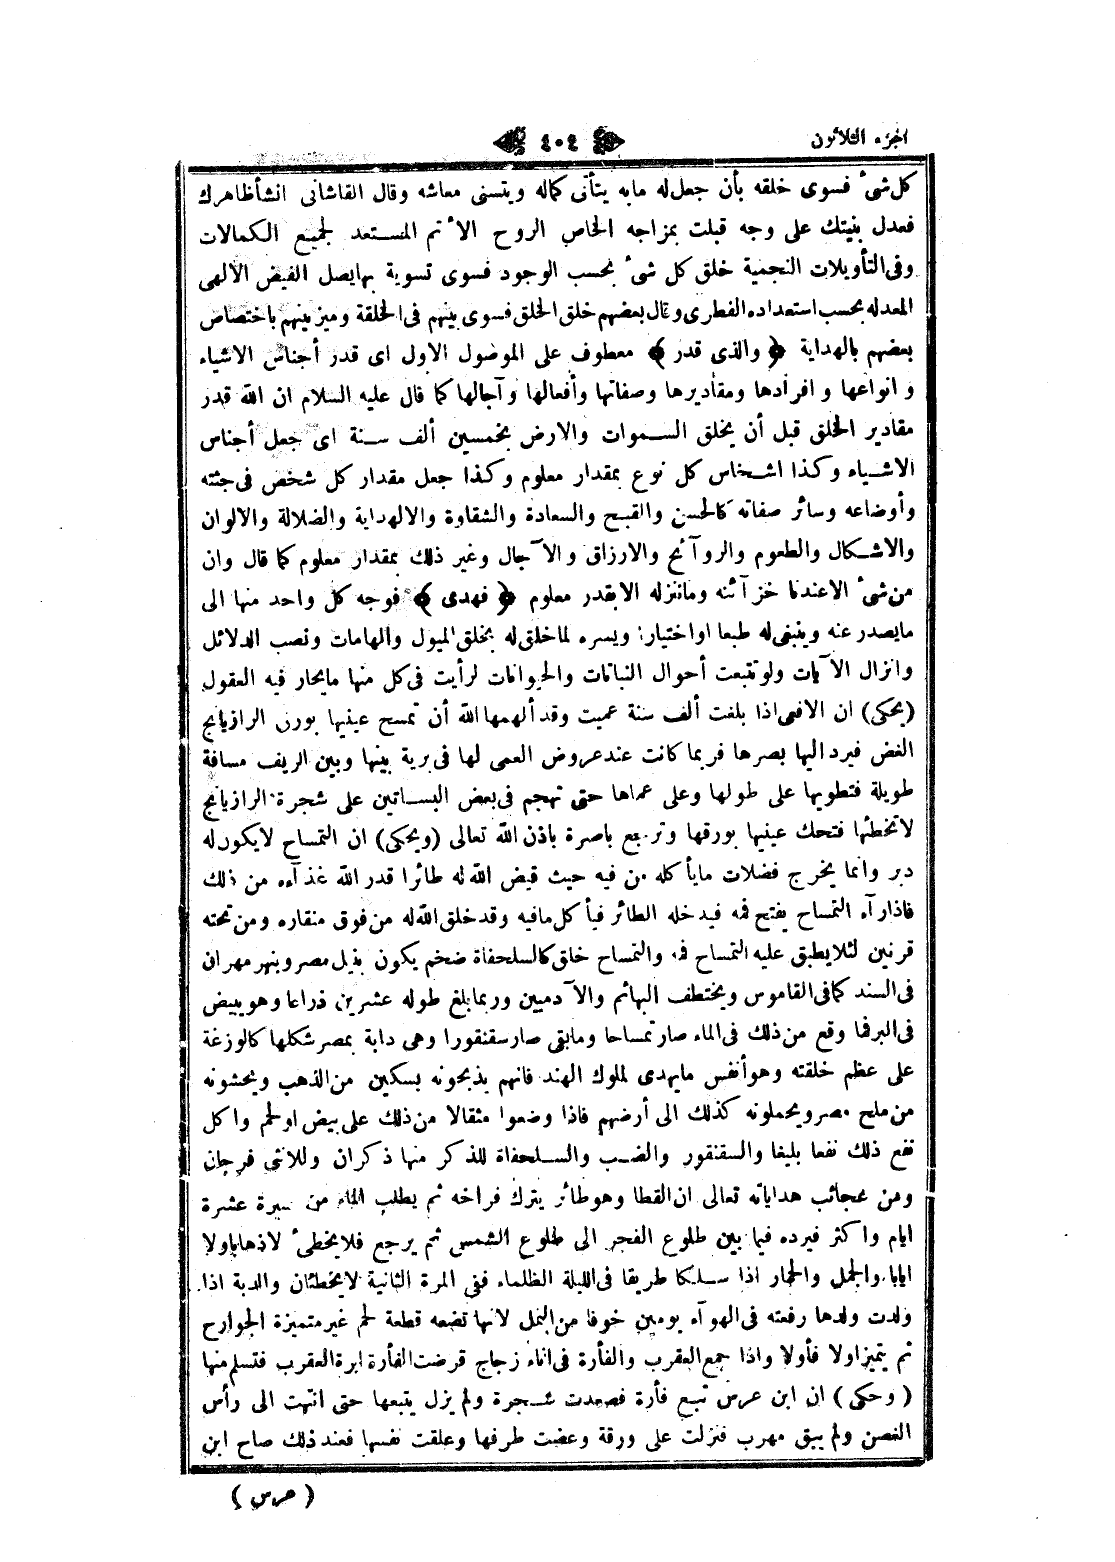 الجزء الثلاثون
٤٠٤
كل شئ فسوى خلقه بأن جعل له مابه يتأتى كماله ويتسنى معاشه وقال القاشانى انشأ ظاهرك
فعدل بنيتك على وجه قبلت بمزاجه الخاص الروح الأتم المستعد لجميع الكمالات
وفى التأويلات النجمية خلق كل شئ بحسب الوجود فسوى تسوية بها يصل الفيض الالهى
المعدله بحسب استعداده الفطرى وقال بعضهم خلق الخلق فسوى بينهم فى الخلقة وميز بينهم باختصاص
بعضهم بالهداية ﴿ والذى قدر ﴾ معطوف على الموصول الاول اى قدر أجناس الاشياء
وانواعها و افرادها ومقاديرها وصفاتها وأفعالها وآجالها كما قال عليه السلام ان الله قدر
مقادير الخلق قبل أن يخلق السموات والارض بخمسين ألف سنة اى جعل أجناس
الاشياء وكذا اشخاس كل نوع بمقدار معلوم وكذا جعل مقدار كل شخص فى جثته
وأوضاعه وسائر صفاته كالحسن والقبح والسعادة والشقاوة والالهداية والضلالة والالوان
والاشكال والطعوم والروآئح والارزاق والآجال وغير ذلك بمقدار معلوم كما قال وان
من شئ الاعندنا خزآئنه وماننزله الابقدر معلوم ﴿ فهدى ﴾ فوجه كل واحد منها الى
مايصدر عنه وينبغى له طبعا او اختيارا ويسره لما خلق له بخلق الميول والهامات ونصب الدلائل
وانزال الآيات ولو تتبعت أحوال النباتات والحيوانات لرأيت فى كل منها مايحار فيه العقول
(يحكى) ان الافعى اذا بلغت ألف سنة عميت وقد ألهمها الله أن تمسح عينيها بورق الرازيانج
الغض فيرد اليها بصرها فربما كانت عند عروض العمى لها فى برية بينها وبين الريف مسافة
طويلة فتطويها على طولها وعلى عماها حتى تهجم فى بعض البساتين على شجرة الرازيانج
لاتخطئها فتحك عينيها بورقها وترجع باصرة باذن الله تعالى (ويحكى) ان التمساح لايكون له
دبر وانما يخرج فضلات مايأكله من فيه حيث قيض الله له طائرا قدر الله غذآءه من ذلك
فاذا رآه التمساح يفتح فمه فيدخله الطائر فيأكل مافيه وقد خلق الله له من فوق منقاره ومن تحته
قرنين لئلا يطبق عليه التمساح فمه والتمساح خلق كالسلحفاة ضخم يكون بنيل مصر وبنهر مهران
فى السند كما فى القاموس ويختطف البهائم والآدميين وربما بلغ طوله عشرين ذراعا وهو يبيض
فى البر فما وقع من ذلك فى الماء صار تمساحا ومابقى صار سقنقورا وهى دابة بمصر شكلها كالوزغة
على عظم خلقته وهو أنفس مايهدى لملوك الهند فانهم يذبحونه بسكين من الذهب ويحشونه
من ملح مصر ويحملونه كذلك الى أرضهم فاذا وضعوا مثقالا من ذلك على بيض او لحم واكل
نفع ذلك نفعا بليغا والسقنقور والضب والسلحفاة للذكر منها ذكران وللانثى فرجان
ومن عجائب هداياته تعالى ان القطا وهو طائر يترك فراخه ثم يطلب الماء من مسيرة عشرة
ايام واكثر فيرده فيما بين طلوع الفجر الى طلوع الشمس ثم يرجع فلا يخطئ لاذهابا ولا
ايابا والجمل والحمار اذا سلكا طريقا فى الليلة الظلماء ففى المرة الثانية لا يخطئان والدبة اذا
ولدت ولدها رفعته فى الهوآء يومين خوفا من النمل لانها تضعه قطعة لحم غير متميزة الجوارح
ثم يتميز اولا فأولا واذا جمع العقرب والفأرة فى اناء زجاج قرضت الفأرة ابرة العقرب فتسلم منها
(وحكى) ان ابن عرس تبع فأرة فصعدت شجرة ولم يزل يتبعها حتى انتهت الى رأس
الغصن ولم يبق مهرب فنزلت على ورقة وعضت طرفها وعلقت نفسها فعند ذلك صاح ابن
(عرس)